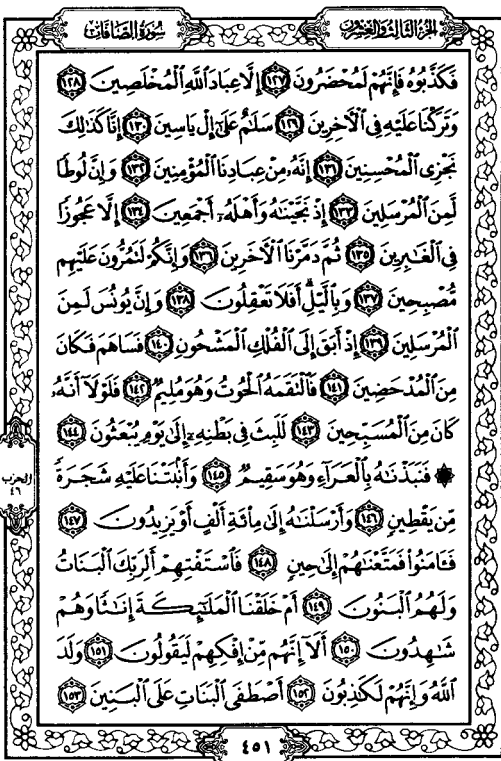 الجزء الثالث والعشرون
سورة الصافات
فَكَذَّبُوهُ فَإِنَّهُمْ لَمُحْضَرُونَ ١٢٧ إِلَّا عِبَادَ ٱللَّهِ ٱلْمُخْلَصِينَ ١٢٨
وَتَرَكْنَا عَلَيْهِ فِي ٱلْـَٔاخِرِينَ ١٢٩ سَلَـٰمٌ عَلَىٰٓ إِلْ يَاسِينَ ١٣٠ إِنَّا كَذَٰلِكَ
نَجْزِي ٱلْمُحْسِنِينَ ١٣١ إِنَّهُۥ مِنْ عِبَادِنَا ٱلْمُؤْمِنِينَ ١٣٢ وَإِنَّ لُوطًا
لَّمِنَ ٱلْمُرْسَلِينَ ١٣٣ إِذْ نَجَّيْنَـٰهُ وَأَهْلَهُۥٓ أَجْمَعِينَ ١٣٤ إِلَّا عَجُوزًا
فِي ٱلْغَـٰبِرِينَ ١٣٥ ثُمَّ دَمَّرْنَا ٱلْـَٔاخَرِينَ ١٣٦ وَإِنَّكُمْ لَتَمُرُّونَ عَلَيْهِم
مُّصْبِحِينَ ١٣٧ وَبِٱلَّيْلِۗ أَفَلَا تَعْقِلُونَ ١٣٨ وَإِنَّ يُونُسَ لَمِنَ
ٱلْمُرْسَلِينَ ١٣٩ إِذْ أَبَقَ إِلَى ٱلْفُلْكِ ٱلْمَشْحُونِ ١٤٠ فَسَاهَمَ فَكَانَ
مِنَ ٱلْمُدْحَضِينَ ١٤١ فَٱلْتَقَمَهُ ٱلْحُوتُ وَهُوَ مُلِيمٌ ١٤٢ فَلَوْلَآ أَنَّهُۥ
كَانَ مِنَ ٱلْمُسَبِّحِينَ ١٤٣ لَلَبِثَ فِي بَطْنِهِۦٓ إِلَىٰ يَوْمِ يُبْعَثُونَ ١٤٤
۞ فَنَبَذْنَـٰهُ بِٱلْعَرَآءِ وَهُوَ سَقِيمٌ ١٤٥ وَأَنۢبَتْنَا عَلَيْهِ شَجَرَةً
مِّن يَقْطِينٍ ١٤٦ وَأَرْسَلْنَـٰهُ إِلَىٰ مِا۟ئَةِ أَلْفٍ أَوْ يَزِيدُونَ ١٤٧
فَـَٔامَنُوا۟ فَمَتَّعْنَـٰهُمْ إِلَىٰ حِينٍ ١٤٨ فَٱسْتَفْتِهِمْ أَلِرَبِّكَ ٱلْبَنَاتُ
وَلَهُمُ ٱلْبَنُونَ ١٤٩ أَمْ خَلَقْنَا ٱلْمَلَـٰٓئِكَةَ إِنَـٰثًا وَهُمْ
شَـٰهِدُونَ ١٥٠ أَلَآ إِنَّهُم مِّنْ إِفْكِهِمْ لَيَقُولُونَ ١٥١ وَلَدَ
ٱللَّهُ وَإِنَّهُمْ لَكَـٰذِبُونَ ١٥٢ أَصْطَفَى ٱلْبَنَاتِ عَلَى ٱلْبَنِينَ ١٥٣
الحزب
٤٦
٤٥١